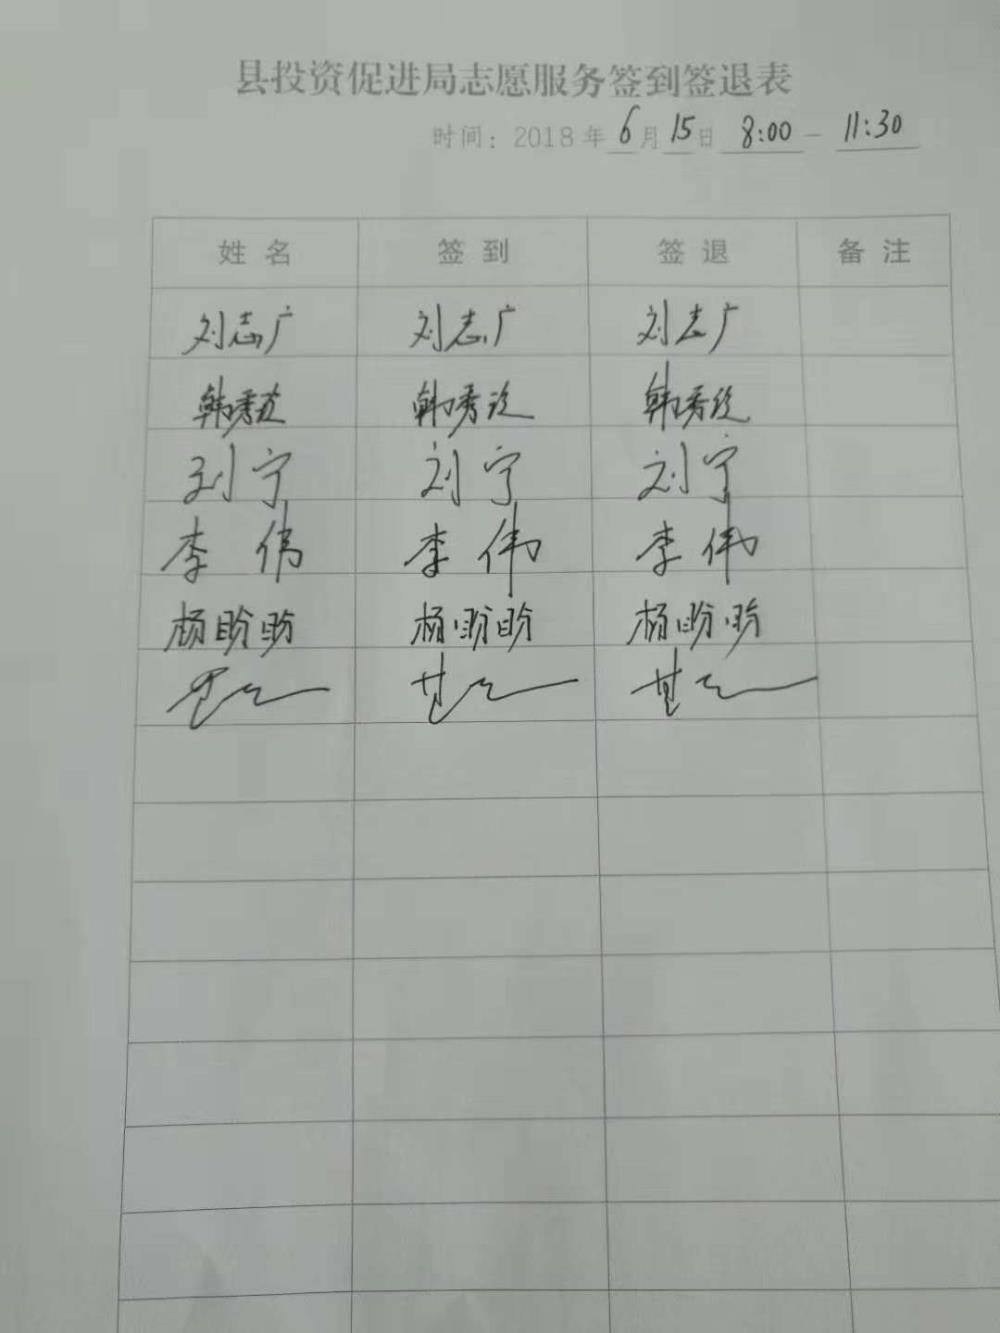 县投资促进局志愿服务签到签退表
时间：2018年6月15日 8:00-11:30
姓名 签到 签退 备注
刘志广 刘志广 刘志广
韩秀 韩秀 韩秀
刘宁 刘宁 刘宁
李伟 李伟 李伟
杨盼盼 杨盼盼 杨盼盼